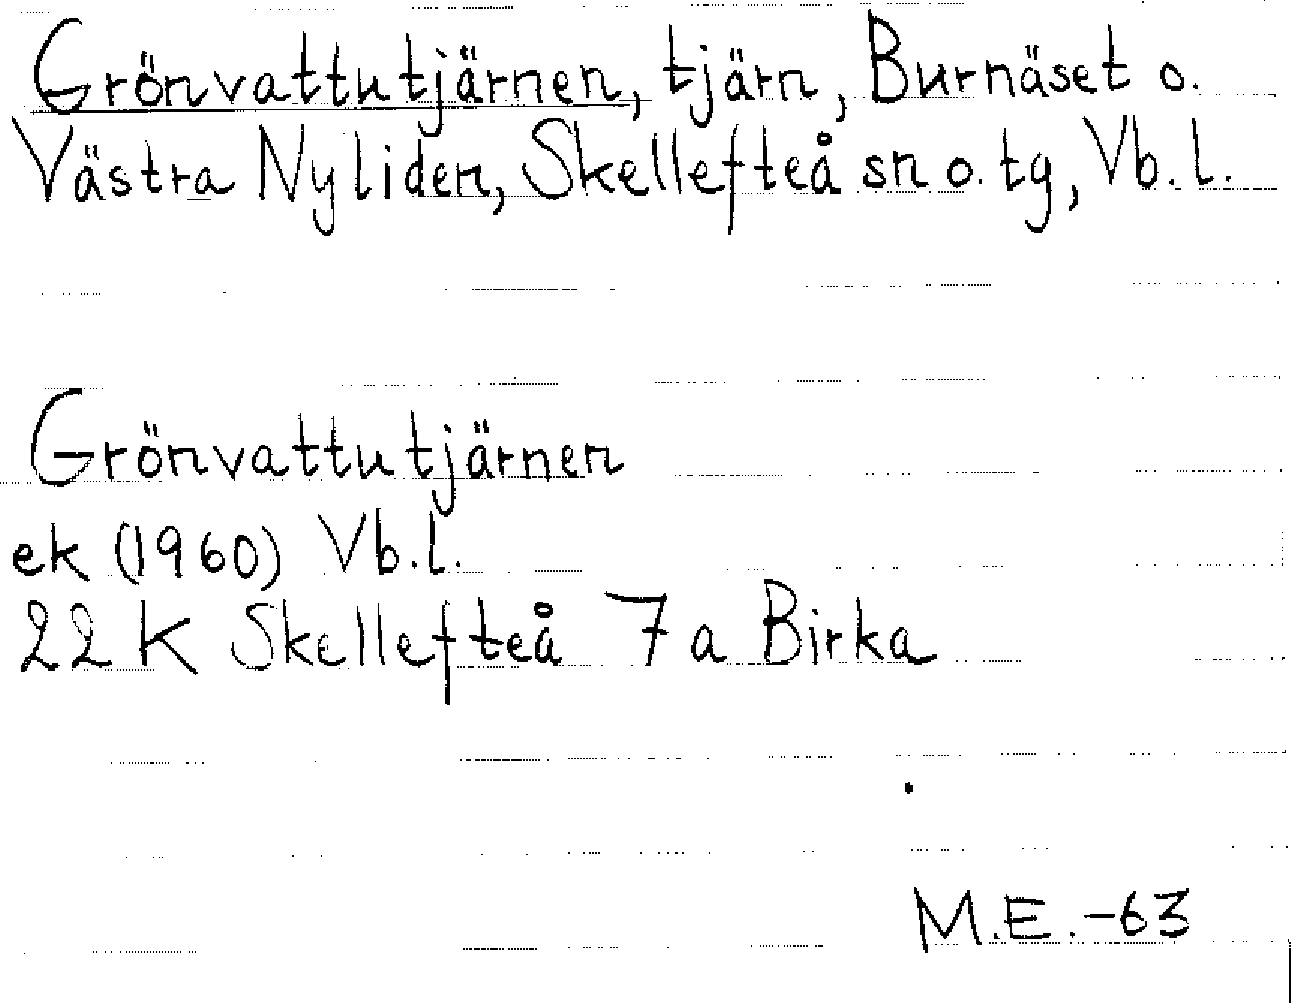 Grönvattutjärnen, tjärn, Burnäset o.
Västra Nyliden, Skellefteå sn o. tg, Vb. l.
Grönvattutjärnen
ek (1960) Vb. l.
22 K Skellefteå 7 a Birka
M.E. -63